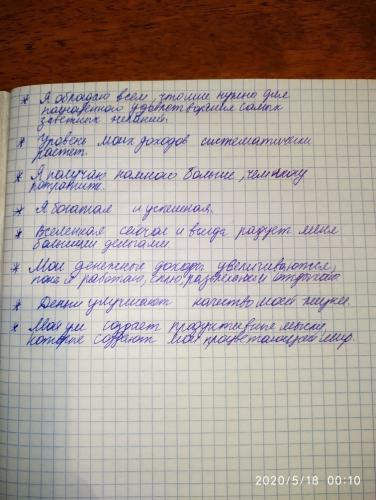 * Я обладаю всем, что мне нужно для
полноценного удовлетворения самых
заветных желаний.
* Уровень моих доходов систематически
растет.
* Я получаю намного больше, чем могу
потратить.
* Я богатая и успешная.
* Вселенная сейчас и всегда радует меня
большими деньгами.
* Мои денежные доходы увеличиваются,
пока я работаю, сплю, развлекаюсь отдыхаю
* Деньги улучшают качество моей жизни.
* Мой ум создает продуктивные мысли,
которые создают мой процветающий мир.
2020/5/18 00:10